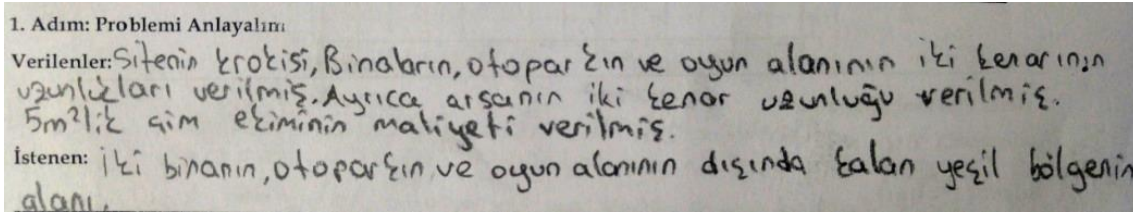 1. Adım: Problemi Anlayalım
Verilenler: Sitenin krokisi, Binaların, otoparkın ve oyun alanının iki kenarının
uzunlukları verilmiş. Ayrıca arsanın iki kenar uzunluğu verilmiş.
5m²lik çim ekiminin maliyeti verilmiş.
İstenen: İki binanın, otoparkın ve oyun alanının dışında kalan yeşil bölgenin
alanı.